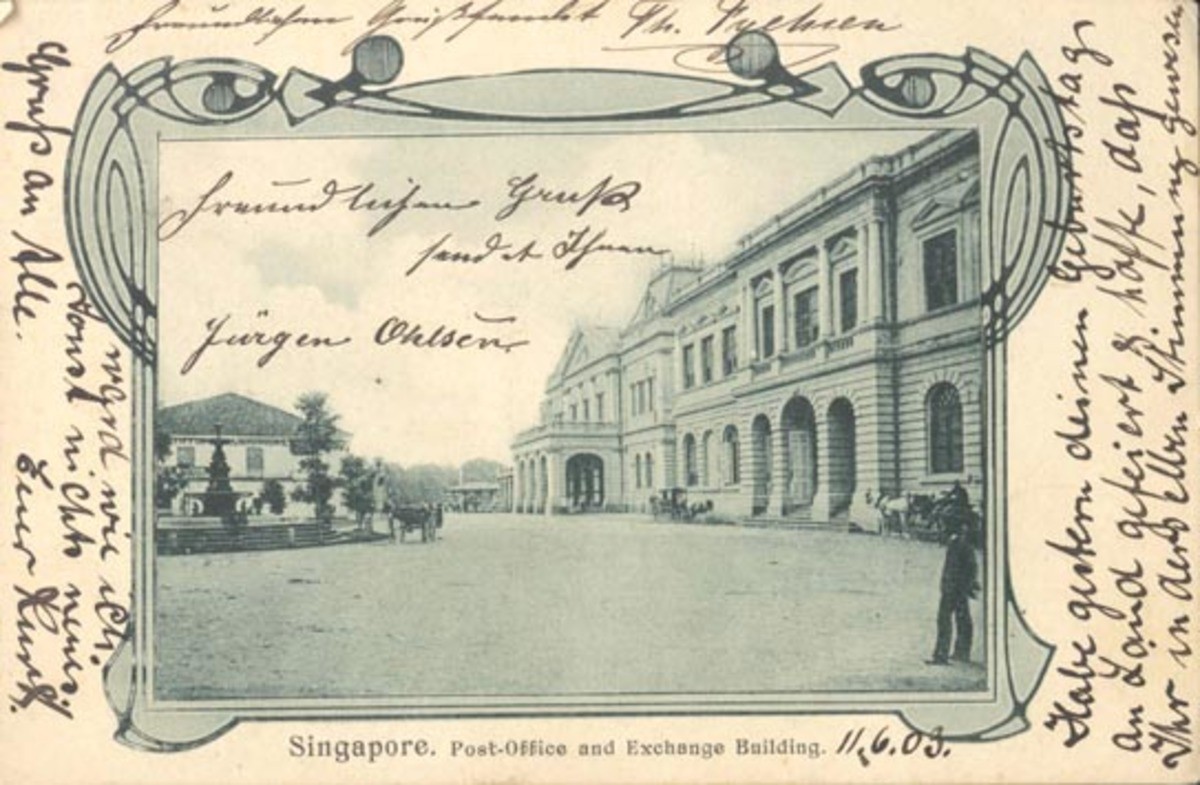 Freundlichen Gruß sendet Th.
Freundlichen Gruß
sendet Ihnen
Jürgen Ohlsen
Singapore. Post-Office and Exchange Building. 11.6.03.
Habe gestern deinen Geburtstag
an Land gefeiert & hoffe, daß
Ihr in derselben Stimmung gewesen
wie ich.
Sonst nichts neues
Euer Kurt.
Gruß an Alle.